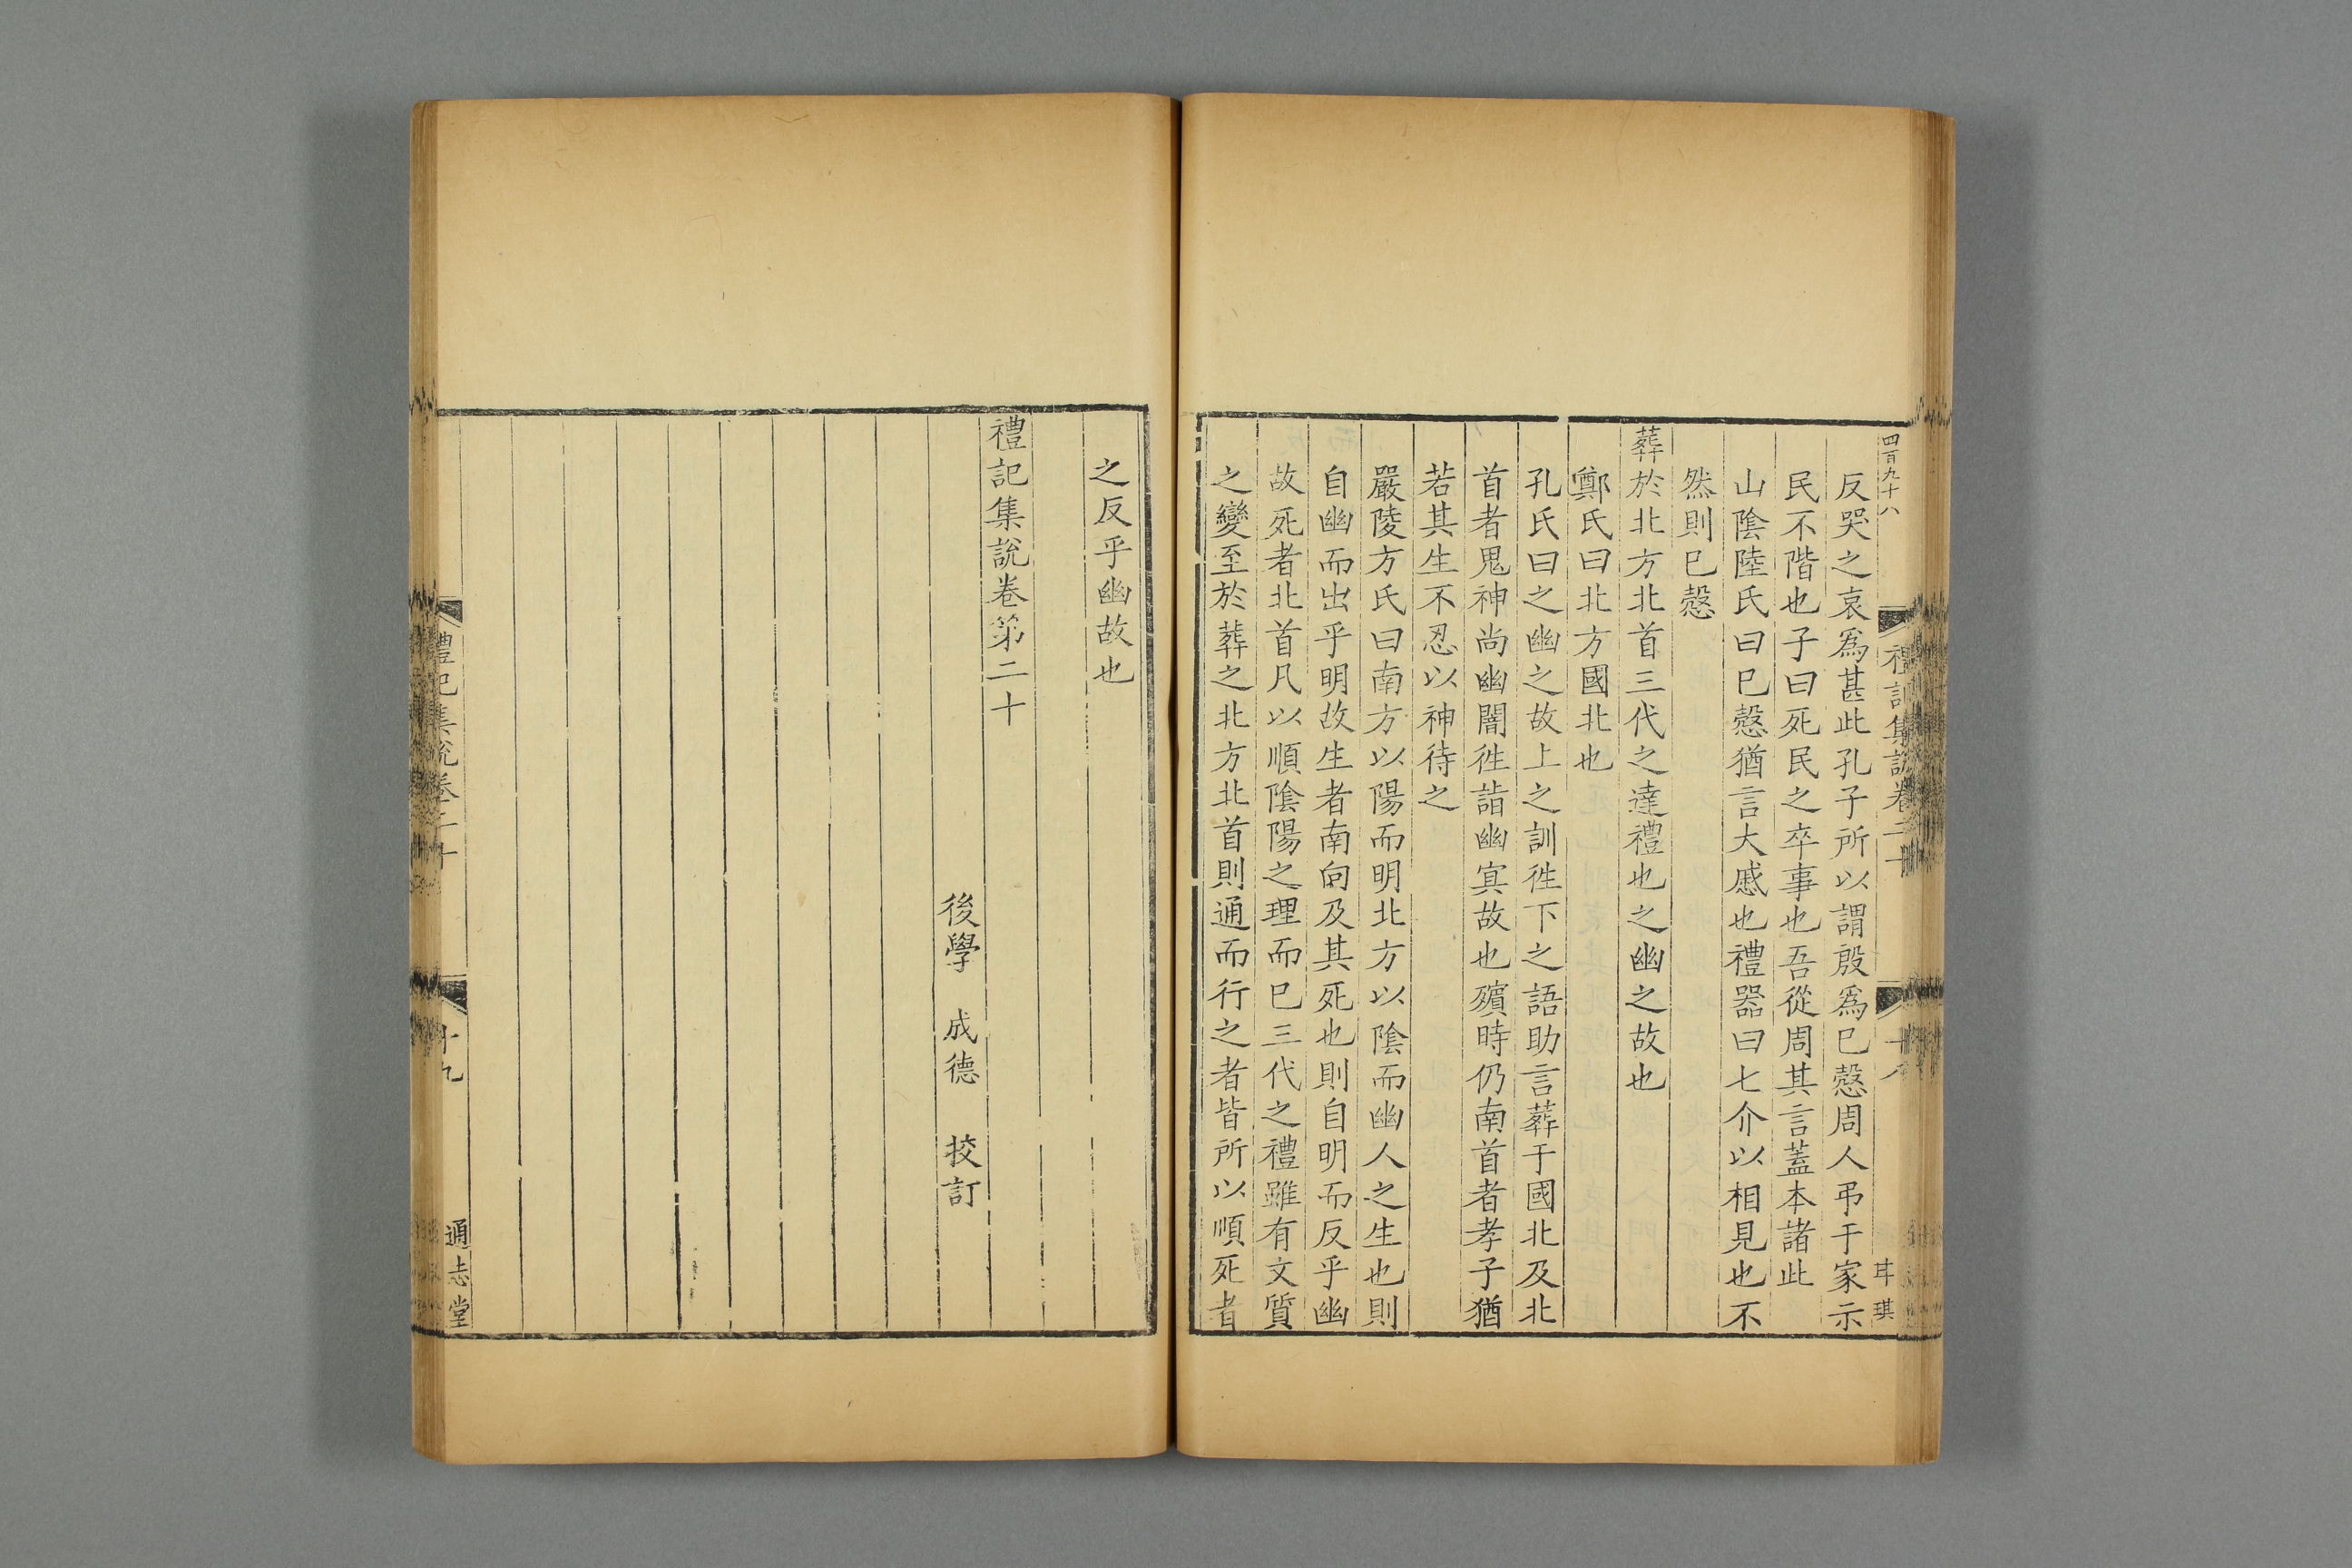 四百九十八
禮記集說卷二十
十八
琪
反哭之哀爲甚此孔子所以謂殷爲已慤周人弔于家示
民不偝也子曰死民之卒事也吾從周其言蓋本諸此
山陰陸氏曰已慤猶言大慼也禮器曰七介以相見也不
然則已慤
葬於北方北首三代之達禮也之幽之故也
鄭氏曰北方國北也
孔氏曰之幽之故上之訓徃下之語助言葬于國北及北
首者鬼神尚幽闇徃詣幽冥故也殯時仍南首者孝子猶
若其生不忍以神待之
嚴陵方氏曰南方以陽而明北方以陰而幽人之生也則
自幽而出乎明故生者南向及其死也則自明而反乎幽
故死者北首凡以順陰陽之理而已三代之禮雖有文質
之變至於葬之北方北首則通而行之者皆所以順死者
之反乎幽故也
禮記集說卷第二十
後學 成德 挍訂
禮記集說卷二十
十九
通志堂